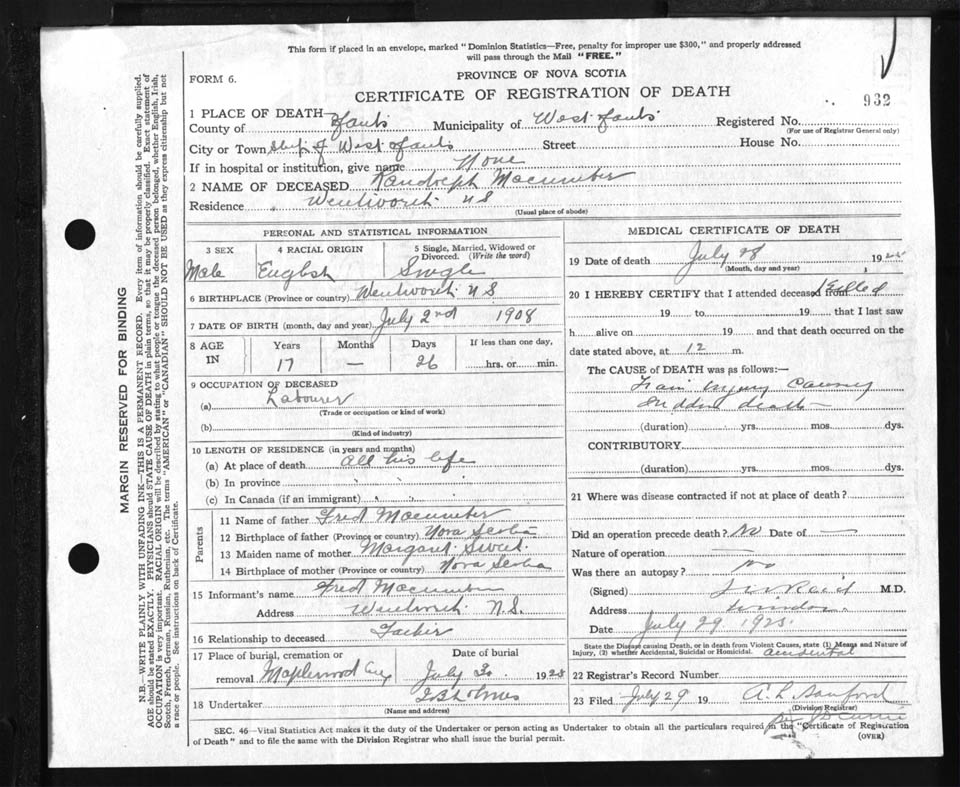 This form if placed in an envelope, marked "Dominion Statistics—Free, penalty for improper use $300," and properly addressed
will pass through the Mail "FREE."
FORM 6.
PROVINCE OF NOVA SCOTIA
CERTIFICATE OF REGISTRATION OF DEATH
932
1 PLACE OF DEATH
County of Hants Municipality of West Hants Registered No.
(For use of Registrar General only)
City or Town of West Hants Street House No.
If in hospital or institution, give name None
2 NAME OF DECEASED Randolph Macumber
Residence Wentworth NS
(Usual place of abode)
PERSONAL AND STATISTICAL INFORMATION
3 SEX 4 RACIAL ORIGIN 5 Single, Married, Widowed or Divorced. (Write the word)
Male English Single
6 BIRTHPLACE (Province or country) Wentworth N S
7 DATE OF BIRTH (month, day and year) July 2nd 1908
8 AGE IN Years Months Days If less than one day,
17 — 26 hrs. or min.
9 OCCUPATION OF DECEASED
(a) Labourer
(Trade or occupation or kind of work)
(b)
(Kind of industry)
10 LENGTH OF RESIDENCE (in years and months)
(a) At place of death all his life
(b) In province " " "
(c) In Canada (if an immigrant)
Parents
11 Name of father Fred Macumber
12 Birthplace of father (Province or country) Nova Scotia
13 Maiden name of mother Margaret Sweet
14 Birthplace of mother (Province or country) Nova Scotia
15 Informant's name Fred Macumber
Address Wentworth N.S.
16 Relationship to deceased Father
17 Place of burial, cremation or removal Maplewood Cey Date of burial July 30 1925
18 Undertaker
(Name and address)
MEDICAL CERTIFICATE OF DEATH
19 Date of death July 28 1925
(Month, day and year)
20 I HEREBY CERTIFY that I attended deceased from Killed
19 to 19 that I last saw
h alive on 19 and that death occurred on the
date stated above, at 12 m.
The CAUSE of DEATH was as follows:
Train Injury Causing
Sudden death
(duration) yrs. mos. dys.
CONTRIBUTORY.
(duration) yrs. mos. dys.
21 Where was disease contracted if not at place of death?
Did an operation precede death? No Date of
Nature of operation —
Was there an autopsy? No
(Signed) Reid M.D.
Address Windsor
Date July 29 1925
State the Disease causing Death, or in death from Violent Causes, state (1) Means and Nature of Injury, (2) whether Accidental, Suicidal or Homicidal. accidental
22 Registrar's Record Number
23 Filed July 29 19 A. L. Sanford
(Division Registrar)
SEC. 46—Vital Statistics Act makes it the duty of the Undertaker or person acting as Undertaker to obtain all the particulars required in the "Certificate of Registration
of Death" and to file the same with the Division Registrar who shall issue the burial permit.
(OVER)
MARGIN RESERVED FOR BINDING
N.B.—WRITE PLAINLY WITH UNFADING INK—THIS IS A PERMANENT RECORD. Every item of information should be carefully supplied.
AGE should be stated EXACTLY. PHYSICIANS should STATE CAUSE OF DEATH in plain terms, so that it may be properly classified. Exact statement of
OCCUPATION is very important. RACIAL ORIGIN will be described by stating to what people or tongue the deceased person belonged, whether English, Irish,
Scotch, French, German, Russian, Ruthenian, etc. The terms "AMERICAN" or "CANADIAN" SHOULD NOT BE USED as they express citizenship but not
a race or people. See instructions on back of Certificate.